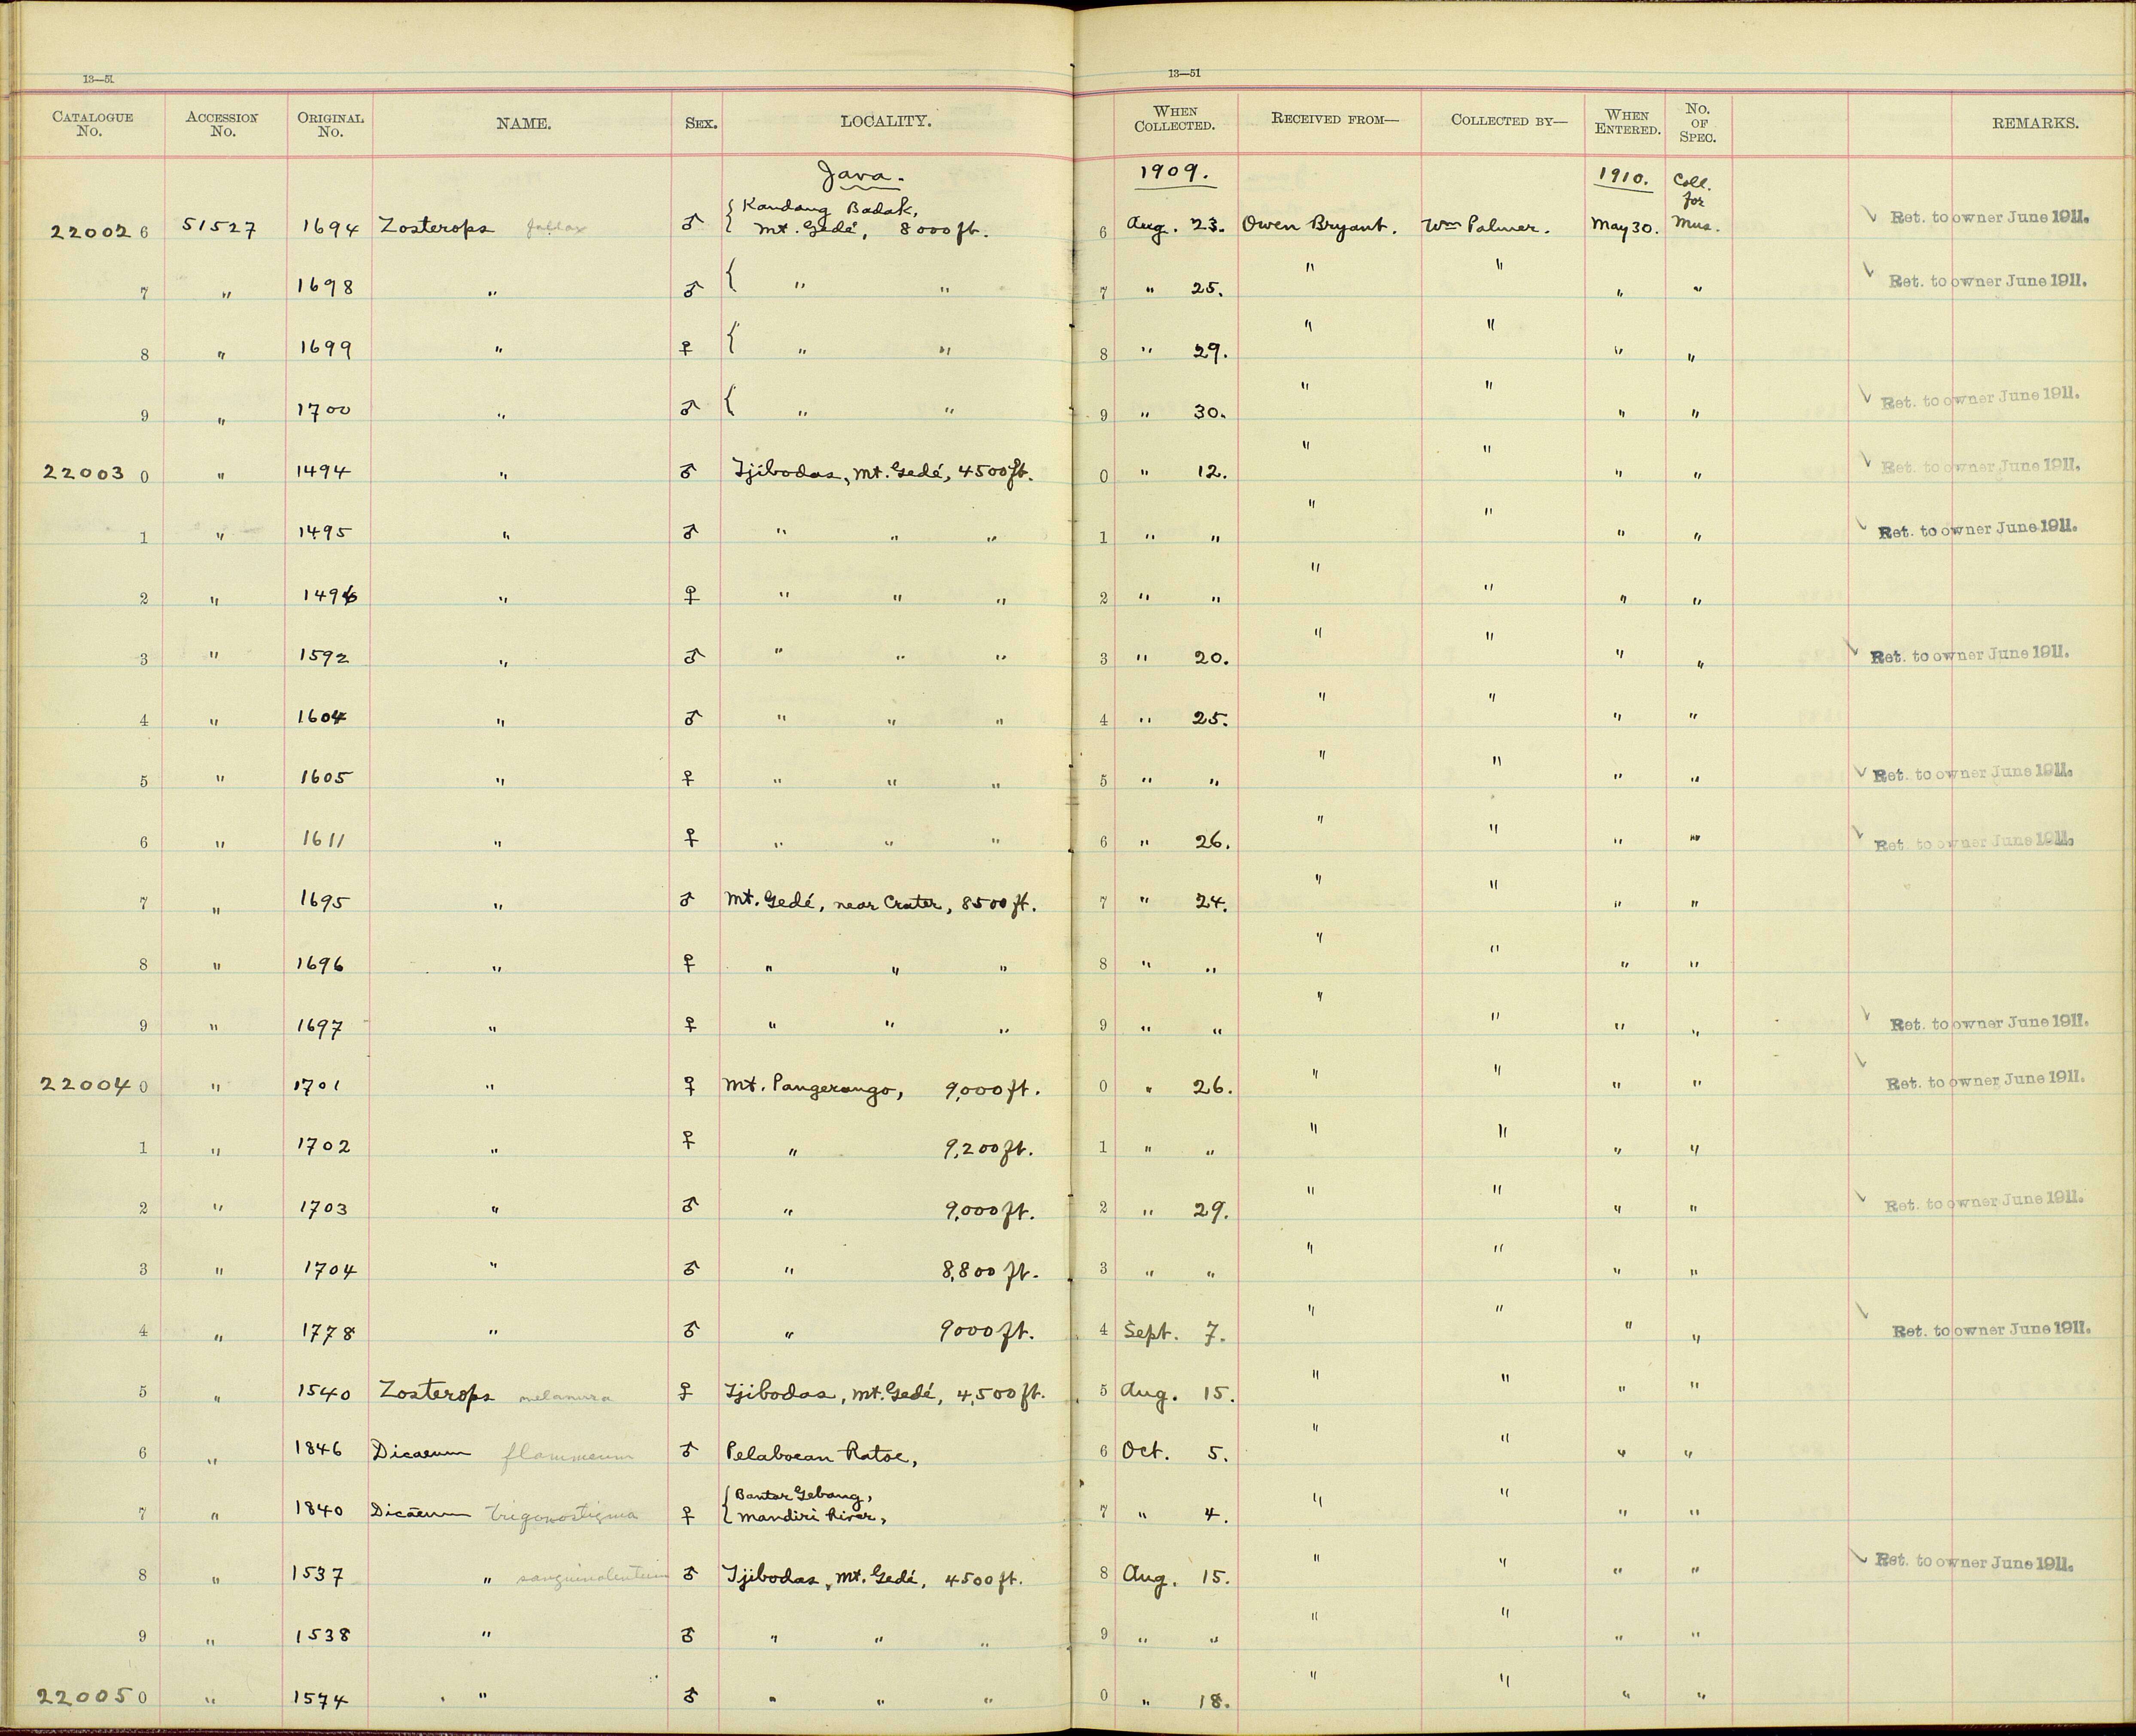 13—51
13—51
CATALOGUE No. ACCESSION No. ORIGINAL No. NAME. SEX. LOCALITY. WHEN COLLECTED. RECEIVED FROM— COLLECTED BY— WHEN ENTERED. No. OF SPEC. REMARKS.
Java. 1909. 1910. Coll. for
{ Kandang Badak,
220026 51527 1694 Zosterops fallax ♂ Mt. Gedé, 8000 ft. 6 Aug. 23. Owen Bryant. Wm Palmer. May 30. Mus. ✓ Ret. to owner June 1911.
7 " 1698 " ♂ { " " 7 " 25. " " " " ✓ Ret. to owner June 1911.
8 " 1699 " ♀ { " " 8 " 29. " " " "
9 " 1700 " ♂ { " " 9 " 30. " " " " ✓ Ret. to owner June 1911.
220030 " 1494 " ♂ Tjibodas, Mt. Gedé, 4500 ft. 0 " 12. " " " " ✓ Ret. to owner June 1911.
1 " 1495 " ♂ " " " 1 " " " " " " ✓ Ret. to owner June 1911.
2 " 1496 " ♀ " " " 2 " " " " " "
3 " 1592 " ♂ " " " 3 " 20. " " " " ✓ Ret. to owner June 1911.
4 " 1604 " ♂ " " " 4 " 25. " " " "
5 " 1605 " ♀ " " " 5 " " " " " " ✓ Ret. to owner June 1911.
6 " 1611 " ♀ " " " 6 " 26. " " " " ✓ Ret. to owner June 1911.
7 " 1695 " ♂ Mt. Gedé, near Crater, 8500 ft. 7 " 24. " " " "
8 " 1696 " ♀ " " " 8 " " " " " "
9 " 1697 " ♀ " " " 9 " " " " " " ✓ Ret. to owner June 1911.
220040 " 1701 " ♀ Mt. Pangerango, 9,000 ft. 0 " 26. " " " " ✓ Ret. to owner June 1911.
1 " 1702 " ♀ " 9,200 ft. 1 " " " " " "
2 " 1703 " ♂ " 9,000 ft. 2 " 29. " " " " ✓ Ret. to owner June 1911.
3 " 1704 " ♂ " 8,800 ft. 3 " " " " " "
4 " 1778 " ♂ " 9000 ft. 4 Sept. 7. " " " " ✓ Ret. to owner June 1911.
5 " 1540 Zosterops melanura ♀ Tjibodas, Mt. Gedé, 4,500 ft. 5 Aug. 15. " " " "
6 " 1846 Dicaeum flammeum ♂ Pelaboean Ratoe, 6 Oct. 5. " " " "
{ Bantar Gebang,
7 " 1840 Dicaeum trigonostigma ♀ Mandiri River, 7 " 4. " " " "
8 " 1537 " sanguinolentum ♂ Tjibodas, Mt. Gedé, 4500 ft. 8 Aug. 15. " " " " ✓ Ret. to owner June 1911.
9 " 1538 " ♂ " " " 9 " " " " " "
220050 " 1574 " ♂ " " " 0 " 18. " " " "